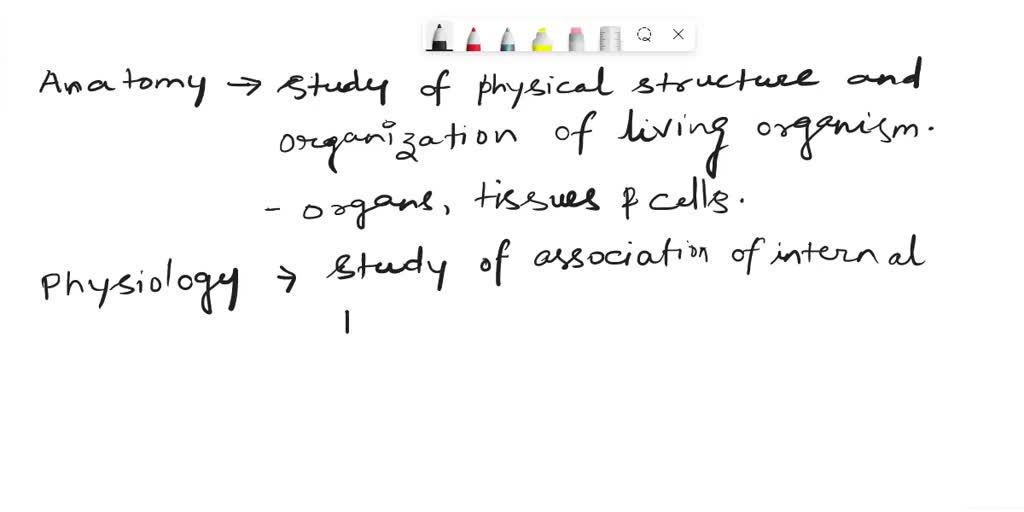 Anatomy → study of physical structure and
organization of living organism.
- organs, tissues & cells.
Physiology → study of association of internal